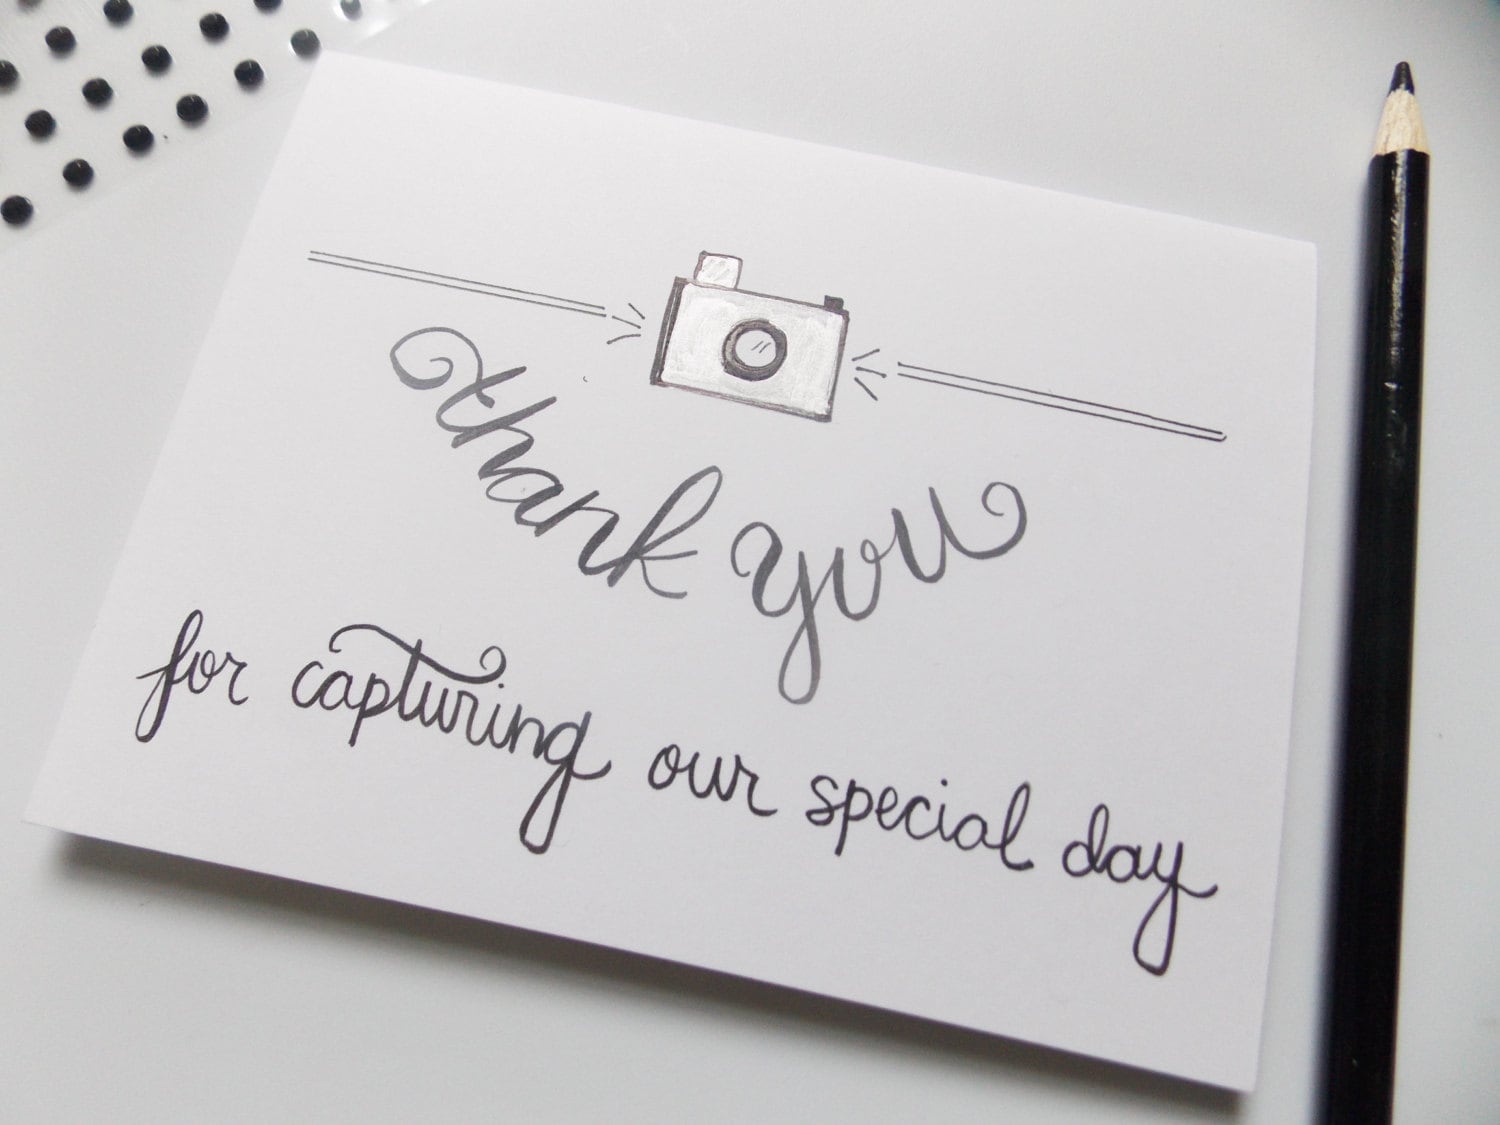 thank you
for capturing our special day